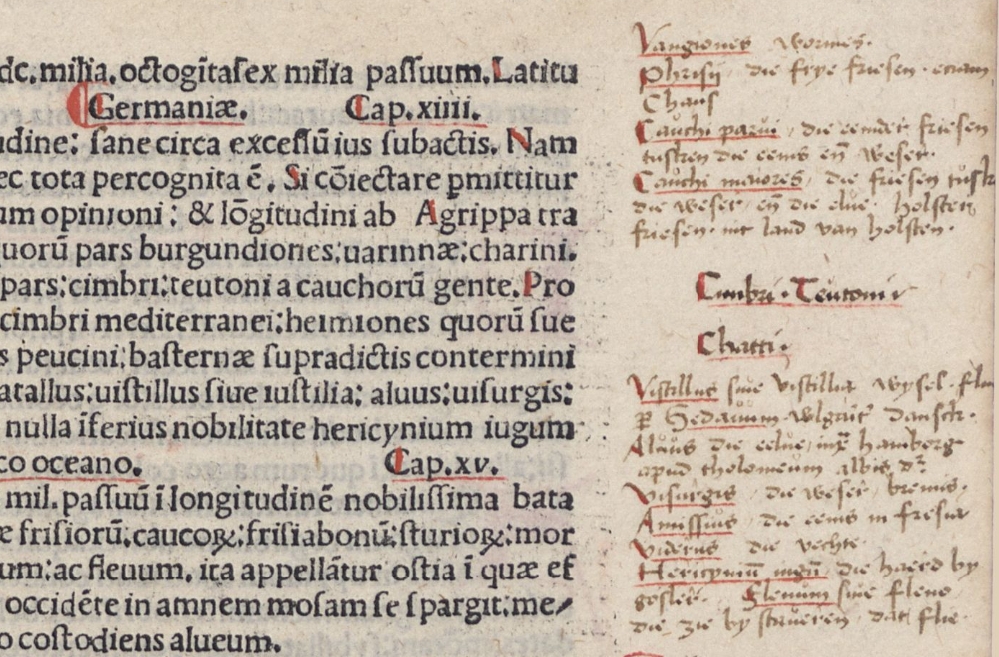 dc. milia. octogĩtaſex milia paſſuum. Latitu
Germaniæ. Cap.xiiii.
udine: ſane circa exceſſũ ius ſubactis. Nam
ec tota percognita ē. Si cõiectare ꝑmittitur
um opinioni: & lõgitudini ab Agrippa tra
uorũ pars burgundiones: uarinnæ: charini.
pars: cimbri: teutoni a cauchorũ gente. Pro
cimbri mediterranei: hermiones quorũ ſue
s peucini: baſternæ ſupradictis contermini
atallus: uiſtillus ſiue iuſtilia: aluus: uiſurgis:
nulla ĩferius nobilitate hericynium iugum
co oceano. Cap.xv.
mil. paſſuũ ĩ longitudinē nobiliſſima bata
e friſiorũ: caucoꝝ: friſiabonũ: ſturioꝝ: mor
um: ac fleuum. ita appellãtur oſtia ĩ quæ eſ
occidēte in amnem moſam ſe ſpargit: me/
o coſtodiens alueum.
Vangiones wormes.
Phrisij, die frye friesen.
Chaus
Cauchi parui, die eemder friesen
tusken die eems eñ weser.
Cauchi maiores, die friesen tusk
die weser, eñ die elue. holsten
friesen. int land van holsten.
Cimbri. Teutoni
Chatti.
Vistillus siue vistillia wysel.
Sedanum dansck.
Aluus die eelue, hamborg
apud tholomeum albis dr̃.
Visurgis, die weser, bremis.
Amissius, die eems in fresia
Viderus die vechte
Hericyniũ iugũ die haerd by
gosler. Flenum siue fleuo,
die zie by staueren, dat flie.